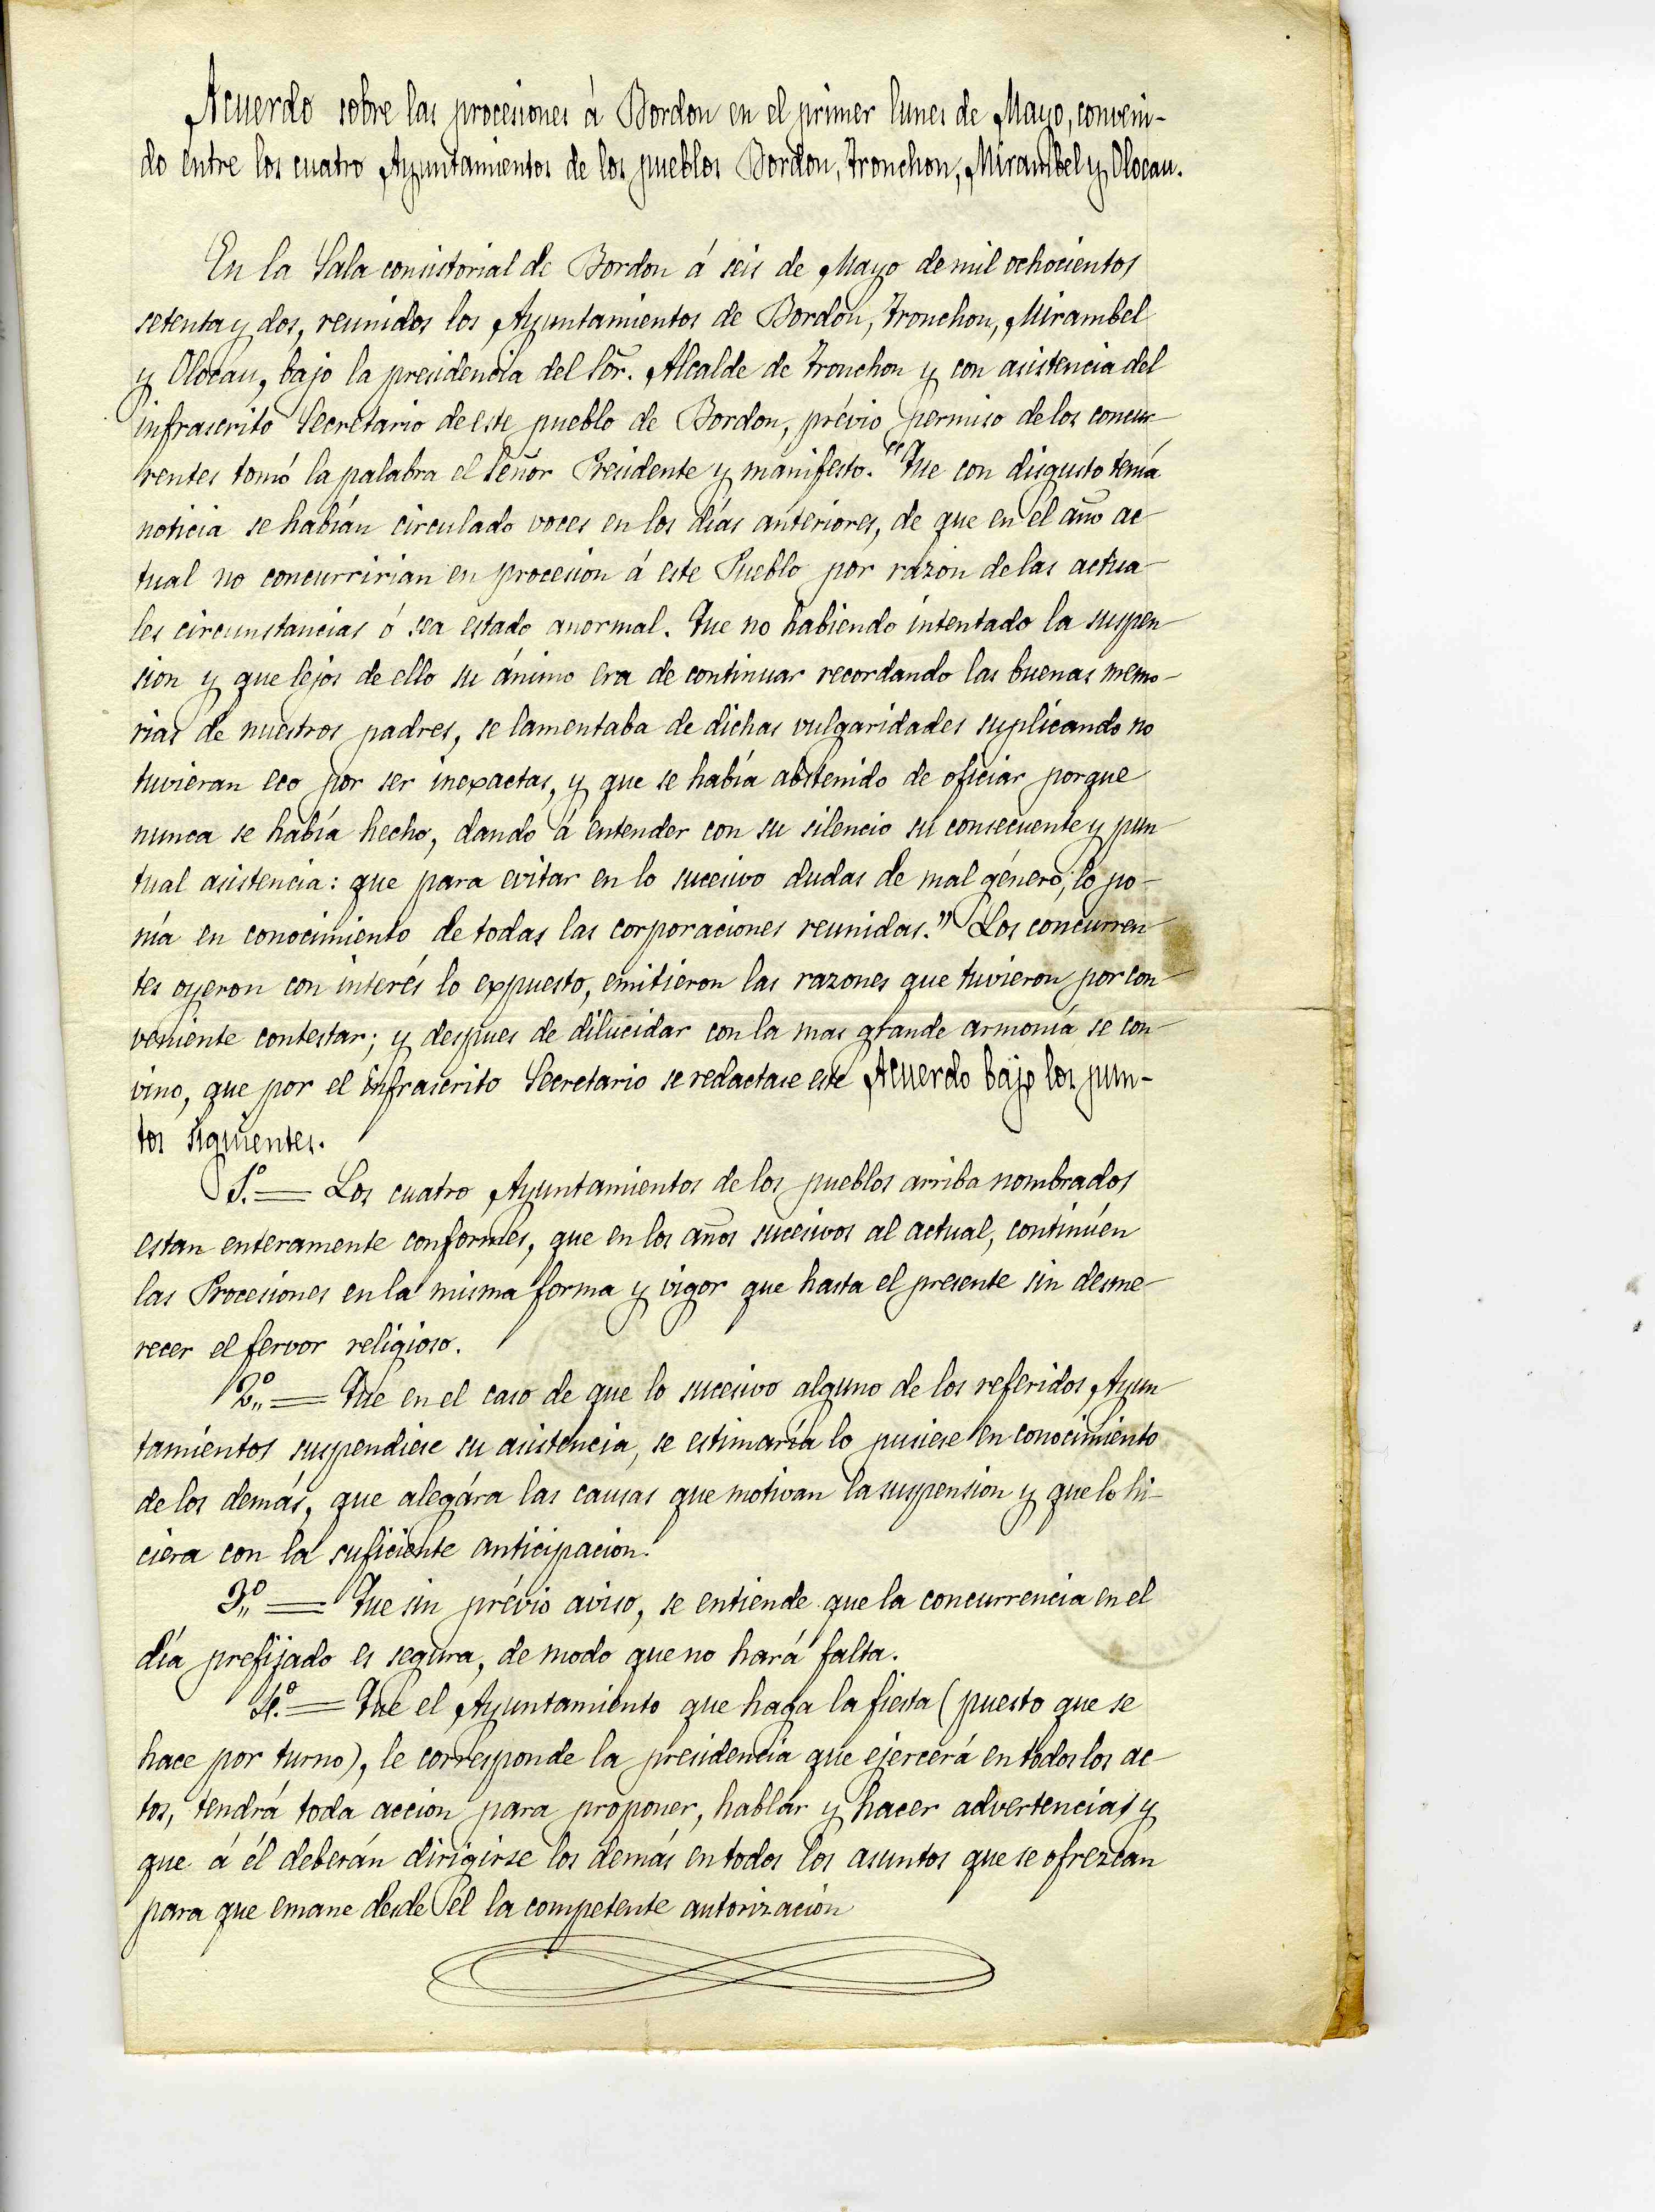 Acuerdo sobre las procesiones à Bordon en el primer lunes de Mayo, conveni-
do entre los cuatro Ayuntamientos de los pueblos Bordon, Tronchon, Mirambel y Olocau.
En la Sala consistorial de Bordon á seis de Mayo de mil ochocientos
setenta y dos, reunidos los Ayuntamientos de Bordon, Tronchon, Mirambel
y Olocau, bajo la presidencia del Sor. Alcalde de Tronchon y con asistencia del
infrascrito Secretario de este pueblo de Bordon, prévio permiso de los concur-
rentes tomó la palabra el Señor Presidente y manifesto. "Que con disgusto tenía
noticia se habían circulado voces en los días anteriores, de que en el año ac-
tual no concurririan en procesion á este Pueblo por razon de las actua-
les circunstancias ó sea estado anormal. Que no habiendo intentado la suspen-
sion y que lejos de ello su ánimo era de continuar recordando las buenas memo-
rias de nuestros padres, se lamentaba de dichas vulgaridades suplicando no
tuvieran eco por ser inexactas, y que se había abstenido de oficiar porque
nunca se había hecho, dando á entender con su silencio su consecuente y pun-
tual asistencia: que para evitar en lo sucesivo dudas de mal género, lo po-
nía en conocimiento de todas las corporaciones reunidas." Los concurren-
tes oyeron con interés lo expuesto, emitieron las razones que tuvieron por con-
veniente contestar; y despues de dilucidar con la mas grande armonía se con-
vino, que por el infrascrito Secretario se redactase este Acuerdo bajo los pun-
tos siguientes.
1.º = Los cuatro Ayuntamientos de los pueblos arriba nombrados
estan enteramente conformes, que en los años sucesivos al actual, continúen
las Procesiones en la misma forma y vigor que hasta el presente sin desme-
recer el fervor religioso.
2.º = Que en el caso de que lo sucesivo alguno de los referidos Ayun-
tamientos suspendiese su asistencia, se estimaría lo pusiese en conocimiento
de los demás, que alegára las causas que motivan la suspension y que lo hi-
ciera con la suficiente anticipacion.
3.º = Que sin prévio aviso, se entiende que la concurrencia en el
día prefijado es segura, de modo que no hará falta.
4.º = Que el Ayuntamiento que haga la fiesta (puesto que se
hace por turno), le corresponde la presidencia que ejercerá en todos los ac-
tos, tendrá toda accion para proponer, hablar y hacer advertencias y
que á él deberán dirigirse los demás en todos los asuntos que se ofrezcan
para que emane desde él la competente autorización